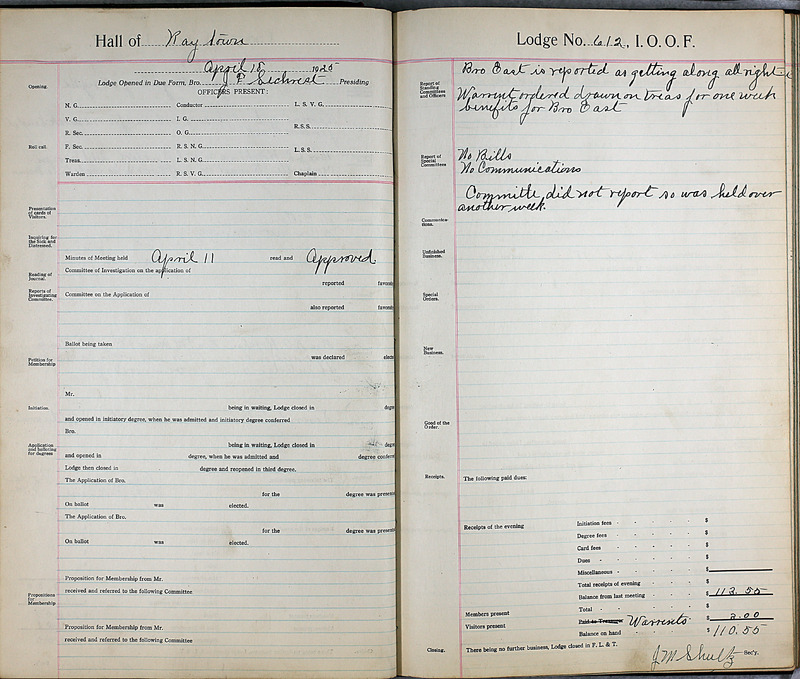 Hall of Ray town
April 18 1925
Lodge Opened in Due Form, Bro. J F Sechrest Presiding
OFFICERS PRESENT:
Opening.
N. G. Conductor L. S. V. G.
V. G. I. G. R.S.S.
R. Sec. O. G.
Roll call.
F. Sec. R. S. N. G. L.S.S.
Treas. L. S. N. G.
Warden R. S. V. G. Chaplain
Presentation of cards of Visitors.
Inquiring for the Sick and Distressed.
Minutes of Meeting held April 11 read and Approved
Reading of Journal.
Committee of Investigation on the application of
reported favora
Reports of Investigating Committee.
Committee on the Application of
also reported favora
Ballot being taken
was declared elect
Petition for Membership
Mr.
Initiation.
being in waiting, Lodge closed in degr
and opened in initiatory degree, when he was admitted and initiatory degree conferred
Bro.
Application and balloting for degrees
being in waiting, Lodge closed in degr
and opened in degree, when he was admitted and degree conferre
Lodge then closed in degree and reopened in third degree.
The Application of Bro.
for the degree was present
On ballot was elected.
The Application of Bro.
for the degree was present
On ballot was elected.
Proposition for Membership from Mr.
received and referred to the following Committee
Propositions for Membership
Proposition for Membership from Mr.
received and referred to the following Committee
Lodge No. 612, I. O. O. F.
Bro East is reported as getting along all right
Report of Standing Committees and Officers
Warrent ordered drawn on treas for one week
benefits for Bro East
Report of Special Committees
No Bills
No Communications
Committe did not report so was held over
another week.
Communications.
Unfinished Business.
Special Orders.
New Business.
Good of the Order.
Receipts.
The following paid dues:
Receipts of the evening
Initiation fees $
Degree fees $
Card fees $
Dues $
Miscellaneous $
Total receipts of evening $
Balance from last meeting $ 113.55
Members present Total $
Visitors present Paid to Treasurer Warrents $ 3.00
Balance on hand $ 110.55
Closing.
There being no further business, Lodge closed in F. L. & T.
J M Shultz Sec'y.